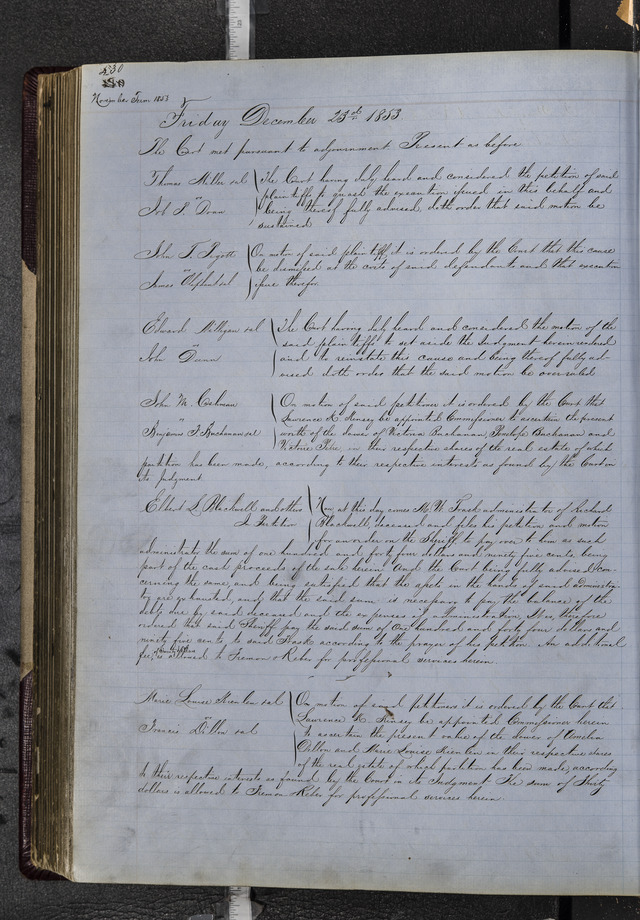 530
November Term 1853
Friday December 23d 1853
The Court met pursuant to adjournment Present as before
Thomas Miller et al
vs
Job S. Doan
The Court having duly heard and considered the petition of said
plaintiffs to quash the execution issued in this behalf and
being thereof fully advised, doth order that said motion be
sustained
John T. Pigott
vs
James Oliphant et al
On motion of said plaintiff, it is ordered by the Court that this cause
be dismissed at the costs of said defendants and that execution
issue therefor
Edward Milligan et al
vs
John Dunn
The Court having duly heard and considered the motion of the
said plaintiffs to set aside the Judgment herein rendered
and to reinstate this cause and being thereof fully ad-
vised doth order that the said motion be overruled
John M. Cochran
vs
Benjamin F Buchanan et al
On motion of said petitioner it is ordered by the Court that
Lawrence K. Kinsey be appointed Commissioner to ascertain the present
worth of the dower of Victoria Buchanan, Penelope Buchanan and
Victoire in their respective shares of the real estate of which
partition has been made, according to their respective interests as found by the Court in
its judgment
Elbert S. Blackwell and others
In Partition
Now, at this day comes M. W. Trask administrator of Richard
Blackwell, deceased and files his petition and motion
for an order on the Sheriff to pay over to him as such
administrator the sum of one hundred and forty four dollars and ninety five cents being
part of the cash proceeds of the sale herein And the Court being fully advised con-
cerning the same, and being satisfied that the assets in the hands of said administra-
tor are exhausted, and that the said sum is necessary to pay the balance of the
debts due by said deceased and the expenses of administration, It is, therefore
ordered that said Sheriff pay the said sum of One hundred and forty four dollars and
ninety five cents to said Trask according to the prayer of his petition An additional
fee is allowed to Fremon & Reber for professional services herein
Marie Louise et al
vs
Francis Dillon et al
On motion of said petitioners it is ordered by the Court that
Lawrence K. Kinsey be appointed Commissioner herein
to ascertain the present value of the dower of
Dillon and Marie Louise in their respective shares
of the real estate of which partition has been made, according
to their respective interests as found by the Court in its Judgment The sum of Thirty
dollars is allowed to Fremon & Reber for professional services herein